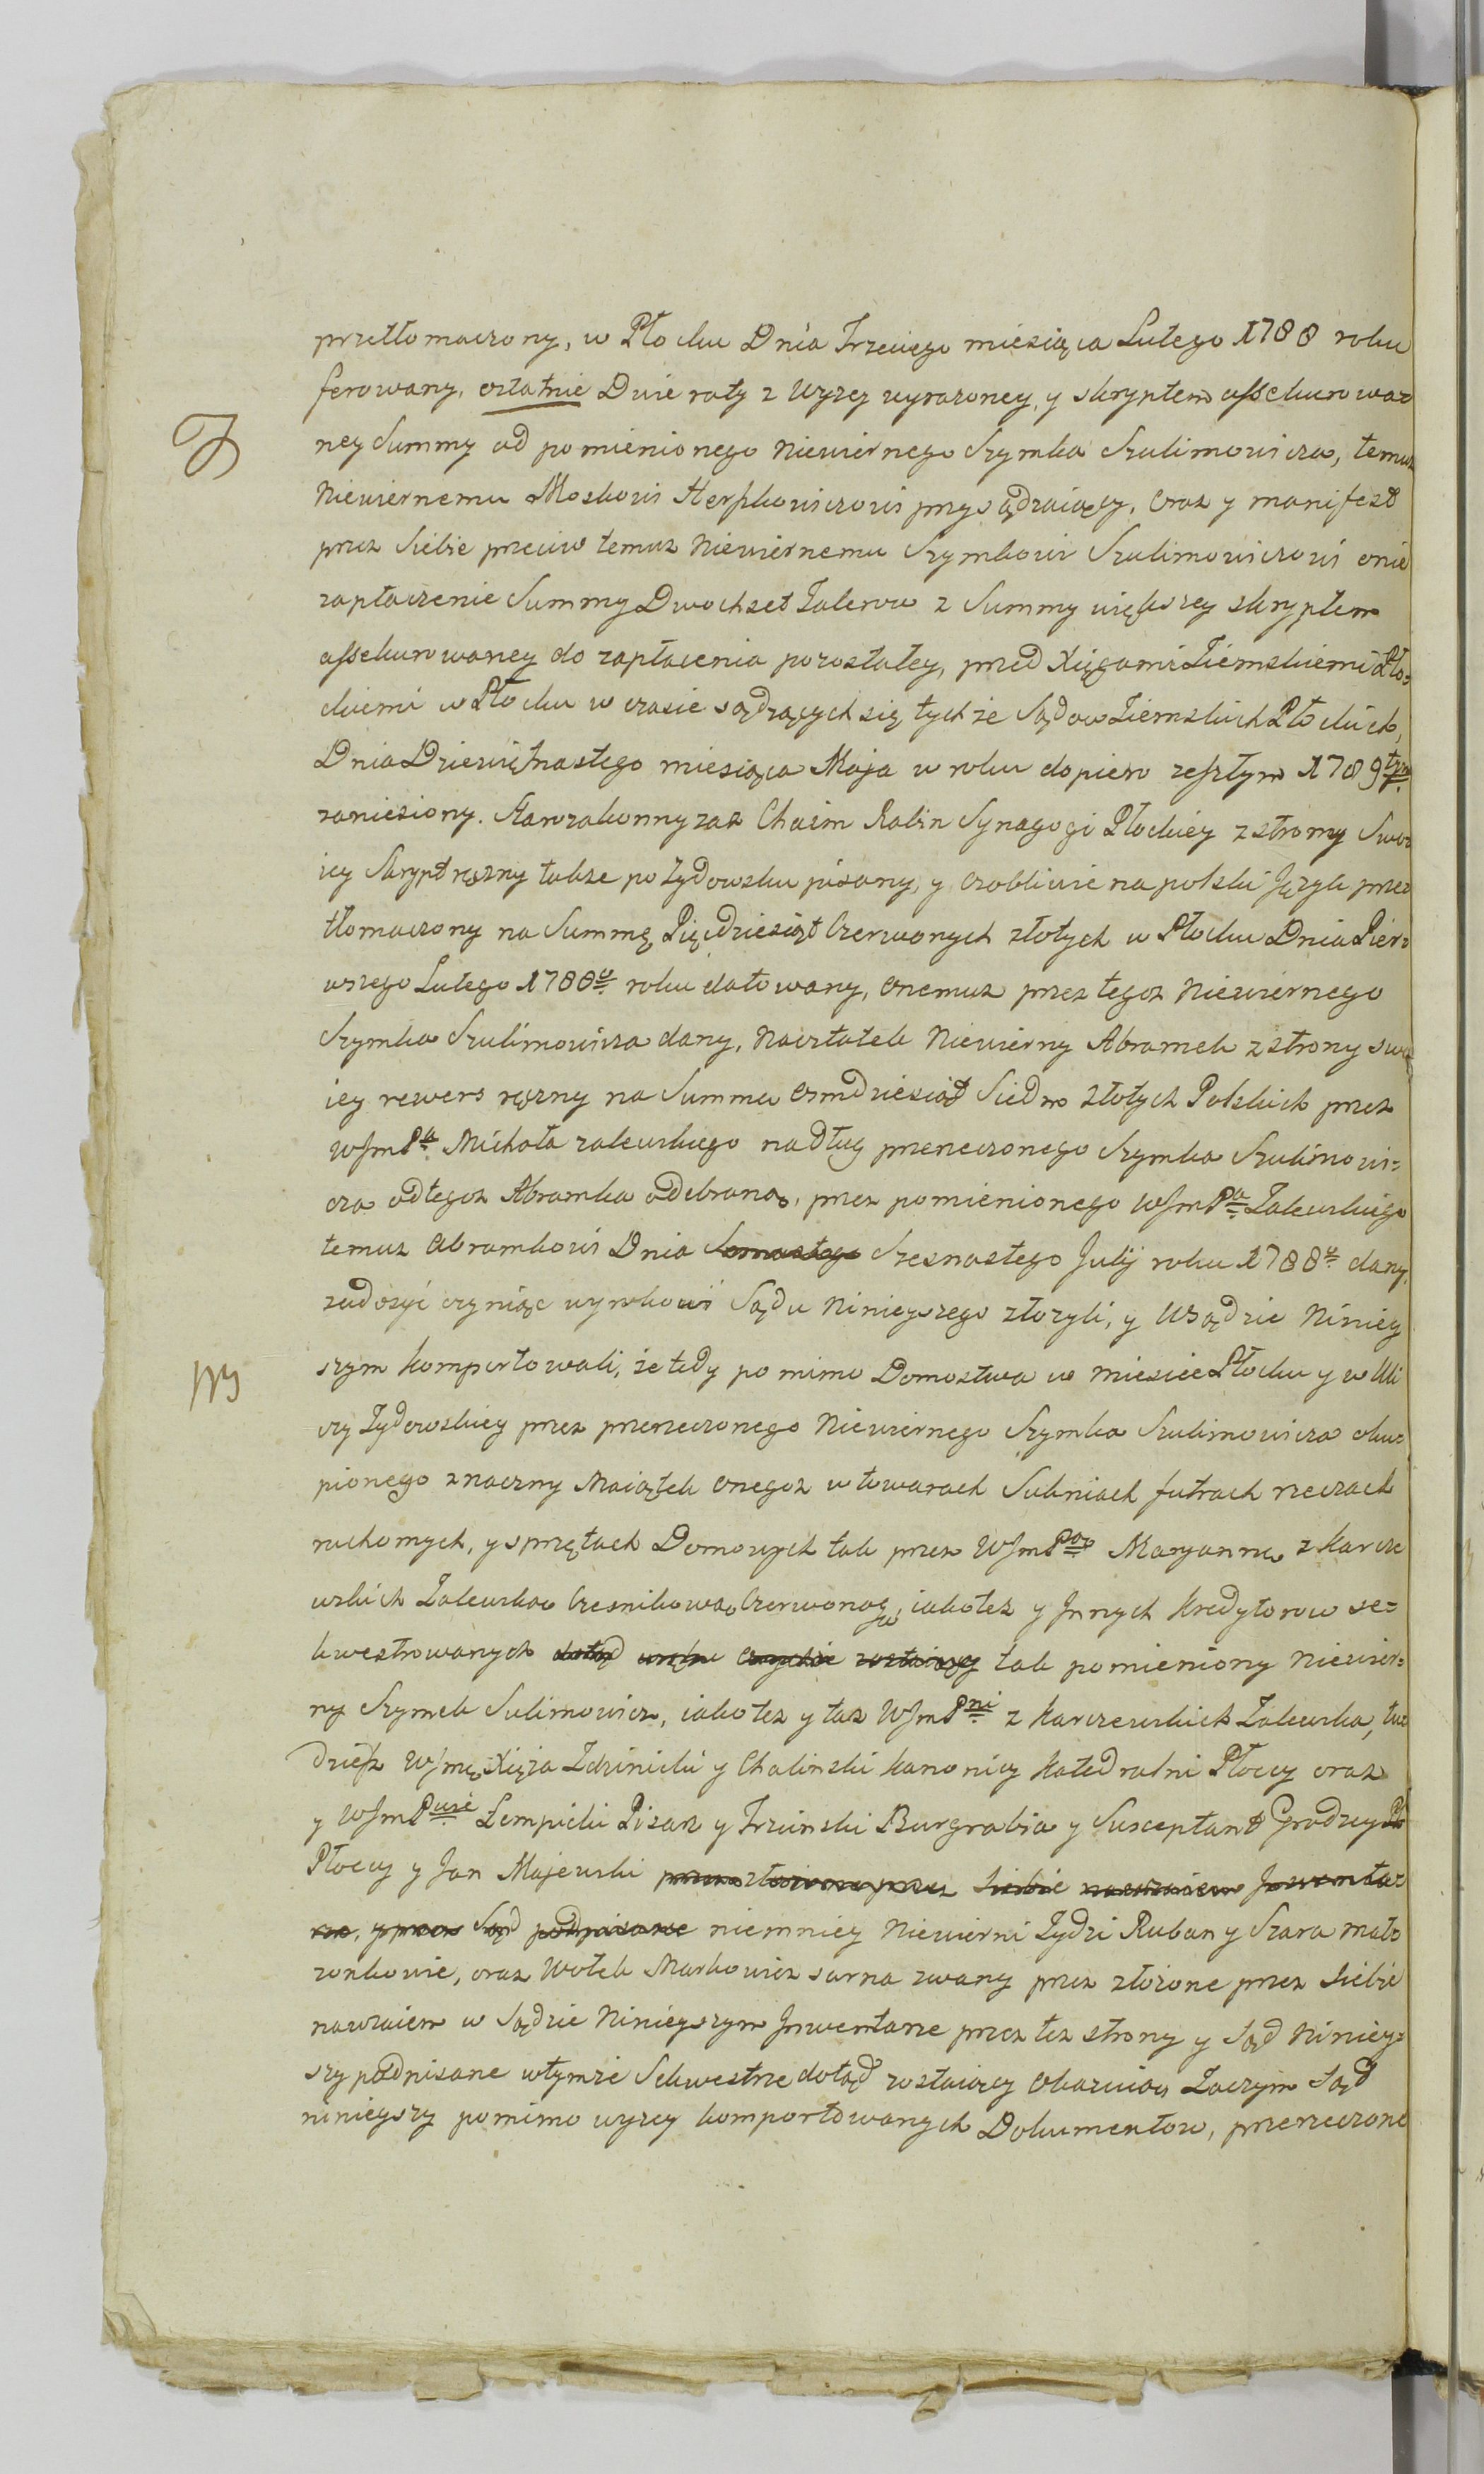 przetłomaczony, w Płocku Dnia Trzeciego miesiąca Lutego 1788 roku
ferowany, ostatnie Dwie raty z wyzey wyrazoney, y skryptem assekurowa=
ney Summy od pomienionego Niewiernego Szymka Szulimowicza, temuz
Niewiernemu Moskowi Herszkowiczowi przysądzaiący, oraz y manifest
przez Siebie przeciw temuz Niewiernemu Szymkowi Szulimowiczowi o nie
zapłaczenie Summy Dwochset Talerow z Summy większey skryptem
assekurowaney do zapłacenia pozostałey, przed Xięgami Ziemskiemi Pło=
ckiemi w Płocku w czasie sądzących się tychze Sądow Ziemskich Płockich,
Dnia Dziewiętnastego miesiąca Maja w roku dopiero zeszłym 1789tym
zaniesiony. Starozakonny zas Chaim Rabin Synagogi Płockiey z strony Swo=
iey Skrypt ręczny takze po Zydowsku pisany, y osobliwie na polski Język prze=
tłomaczony na Summę Pięćdziesiąt Czerwonych złotych w Płocku Dnia Pier=
wszego Lutego 1788o roku datowany, onemuz przez tegoz Niewiernego
Szymka Szulimowicza dany, Naostatek Niewierny Abramek z strony swo=
iey rewers ręczny na Summę osmdziesiąt Siedm złotych Polskich przez
WJmPa Michała Zalewskiego na dług przerzeczonego Szymka Szulimowi=
cza od tegoz Abramka odebraną, przez pomienionego WJmPa Zalewskiego
temuz Abramkowi Dnia Szesnastego Julij roku 1788o dany,
zadosyć czyniąc wyrokowi Sądu Ninieyszego złozyli, y w Sądzie Niniey
szym komportowali, że tedy pomimo Domostwa w miescie Płocku y w Uli
cy Zydowskiey przez przerzeczonego Niewiernego Szymka Szulimowicza oku=
pionego znaczny Maiątek onegoz w towarach Sukniach futrach rzeczach
ruchomych, y sprzętach Domowych tak przez WJmPą Maryannę z Karcze
wskich Zalewską Czesnikową Czerwoną, iakotez y Jnnych Kredytorow se=
kwestrowanych dotąd zostaiący tak pomieniony Niewier=
ny Szymek Sulimowicz, iako tez y taz WJmPni z Karczewskich Zalewska, tu=
dziesz WJmę Xięża Zdzinicki y Chalinski Kanonicy Katedralni Płoccy oraz
y WJmPwie Łempicki Pisarz y Trzcinski Burgrabia y Susceptant Grodzcy
Płoccy y Jan Majewski przez siebie nawzaiem Jnwenta=
rze, y przez Sąd podpisane niemniey Niewierni Zydzi Ruban y Szara mało
zonkowie, oraz Wołek Markowicz sarna zwany przez złożone przez Siebie
nawzaiem w Sądzie Ninieyszym Jnwentarze przez tez strony y Sąd Niniey=
szy podpisane w tymze Sekwestrze dotąd zostaiący okazuią Zaczym Sąd
ninieyszy pomimo wyzey komportowanych Dokumentow, przerzeczone